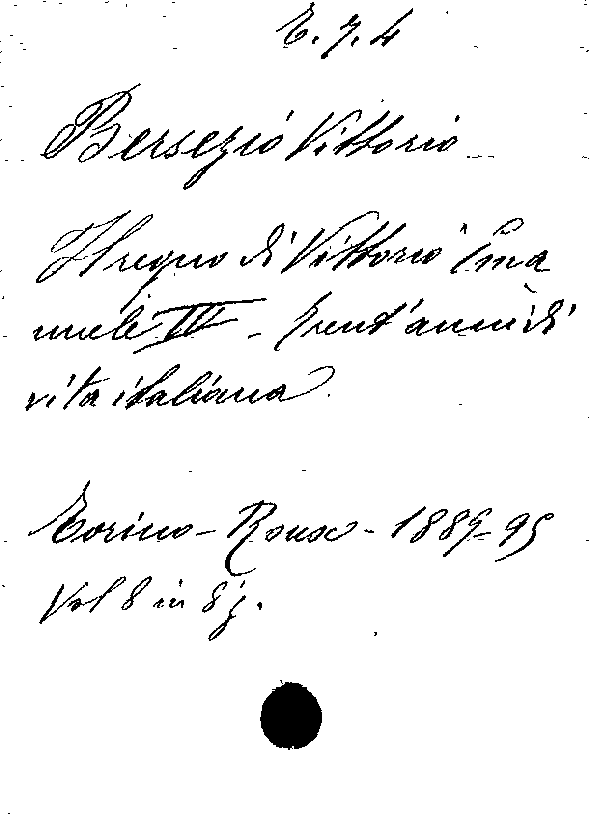 E. 7. 4
Bersezio Vittorio
Il regno di Vittorio Ema
nuele IV - Trent'anni di
vita italiana
Torino - Roux - 1889-95
Vol 8 in 8°